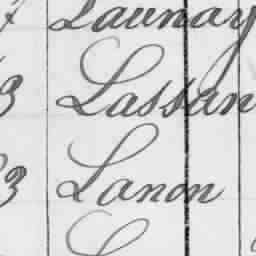 Launay
3 Lassan
3 Lanon